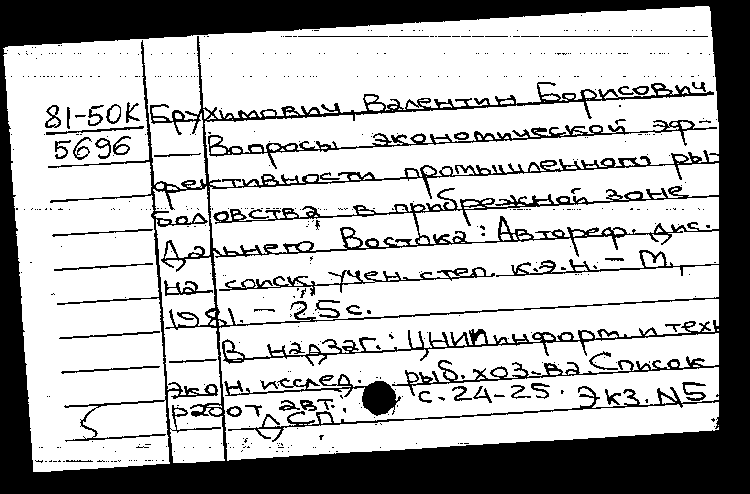 81-50К
5696
Брухимович, Валентин Борисович
Вопросы экономической эф-
фективности промышленного ры-
боловства в прибрежной зоне
Дальнего Востока: Автореф. дис.
на соиск. учен. степ. к.э.н. – М.,
1981. – 25 с.
В надзаг.: ЦНИИ информ. и техн
экон. исслед. рыб. хоз-ва. Список
работ авт. с. 24-25. Экз. N5.
ДСП.